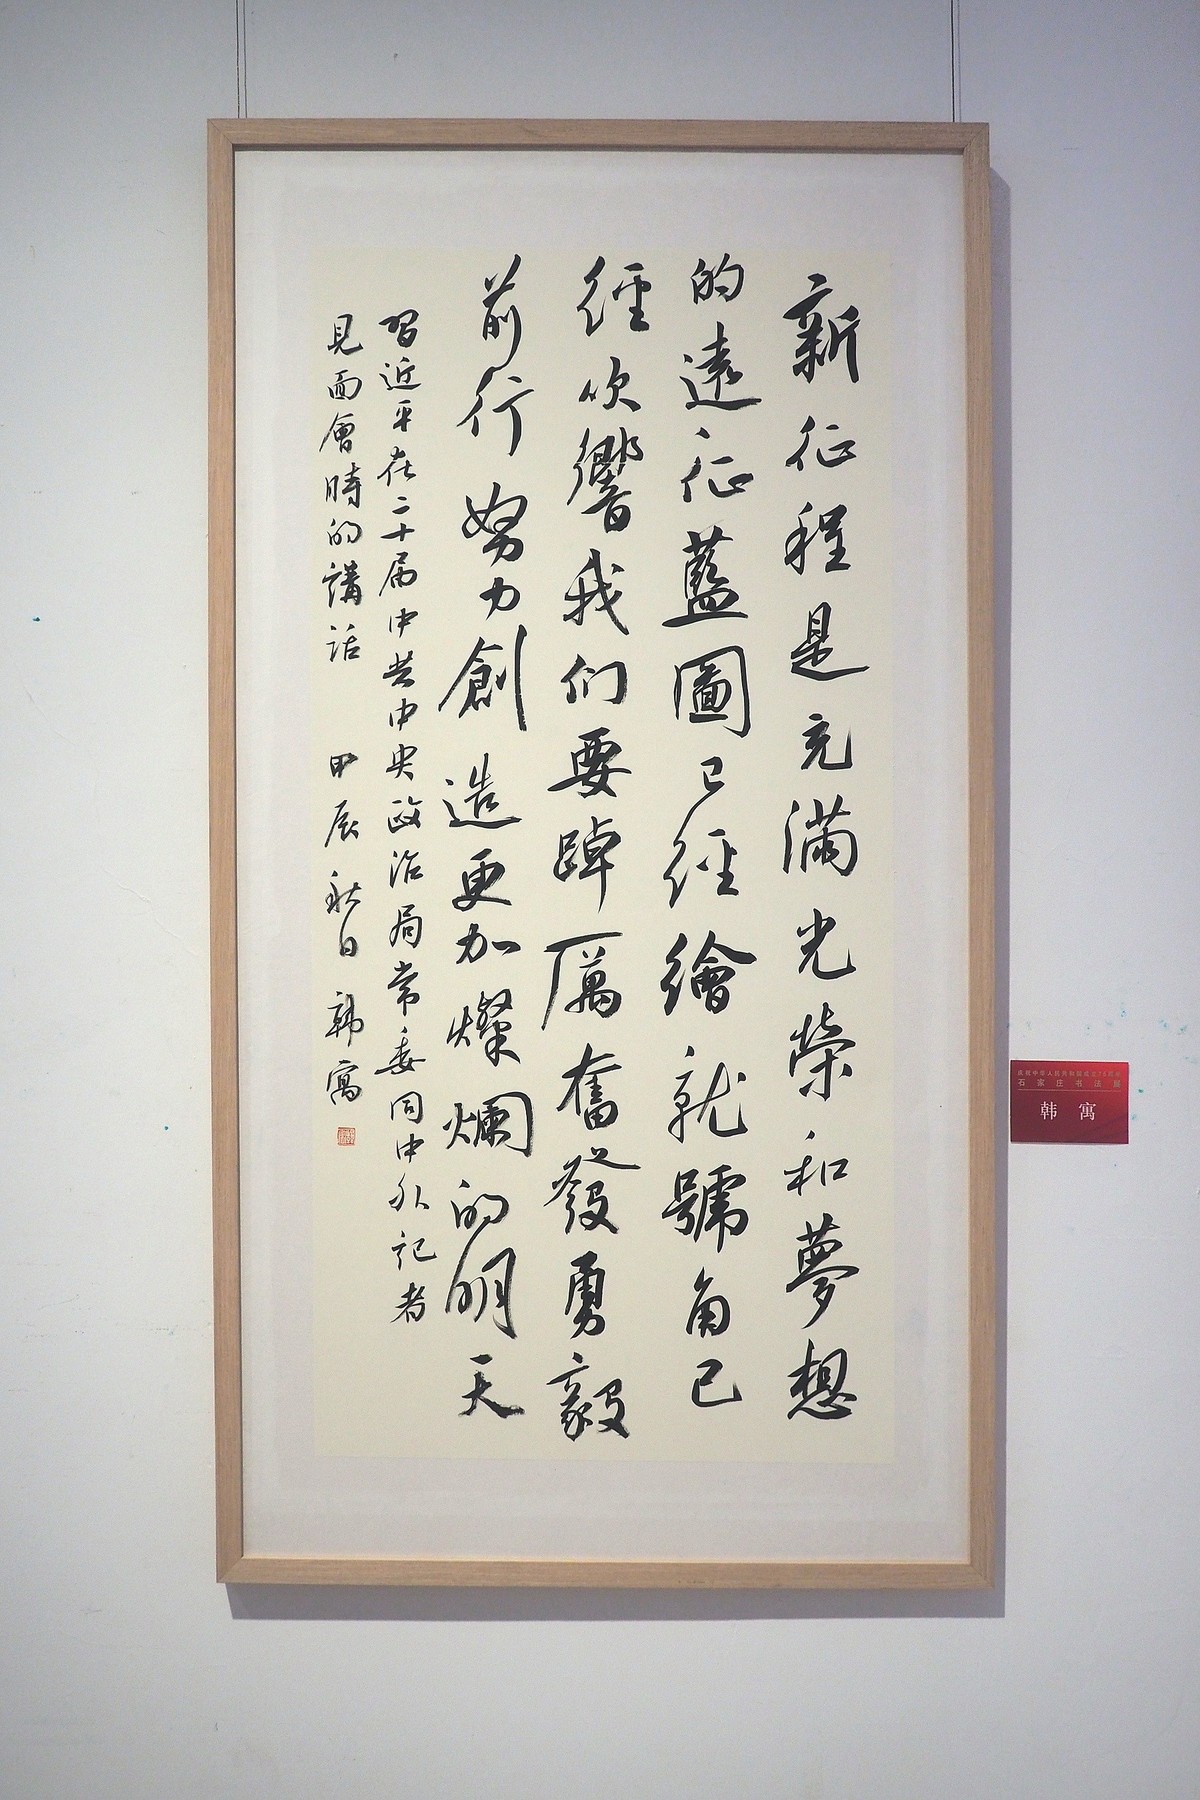 新征程是充滿光榮和夢想
的遠征藍圖已經繪就號角已
經吹響我们要踔厲奮發勇毅
前行努力創造更加燦爛的明天
習近平在二十届中共中央政治局常委同中外记者
見面會時的講话 甲辰秋日 韩寓
庆祝中华人民共和国成立75周年
石家庄书法展
韩寓